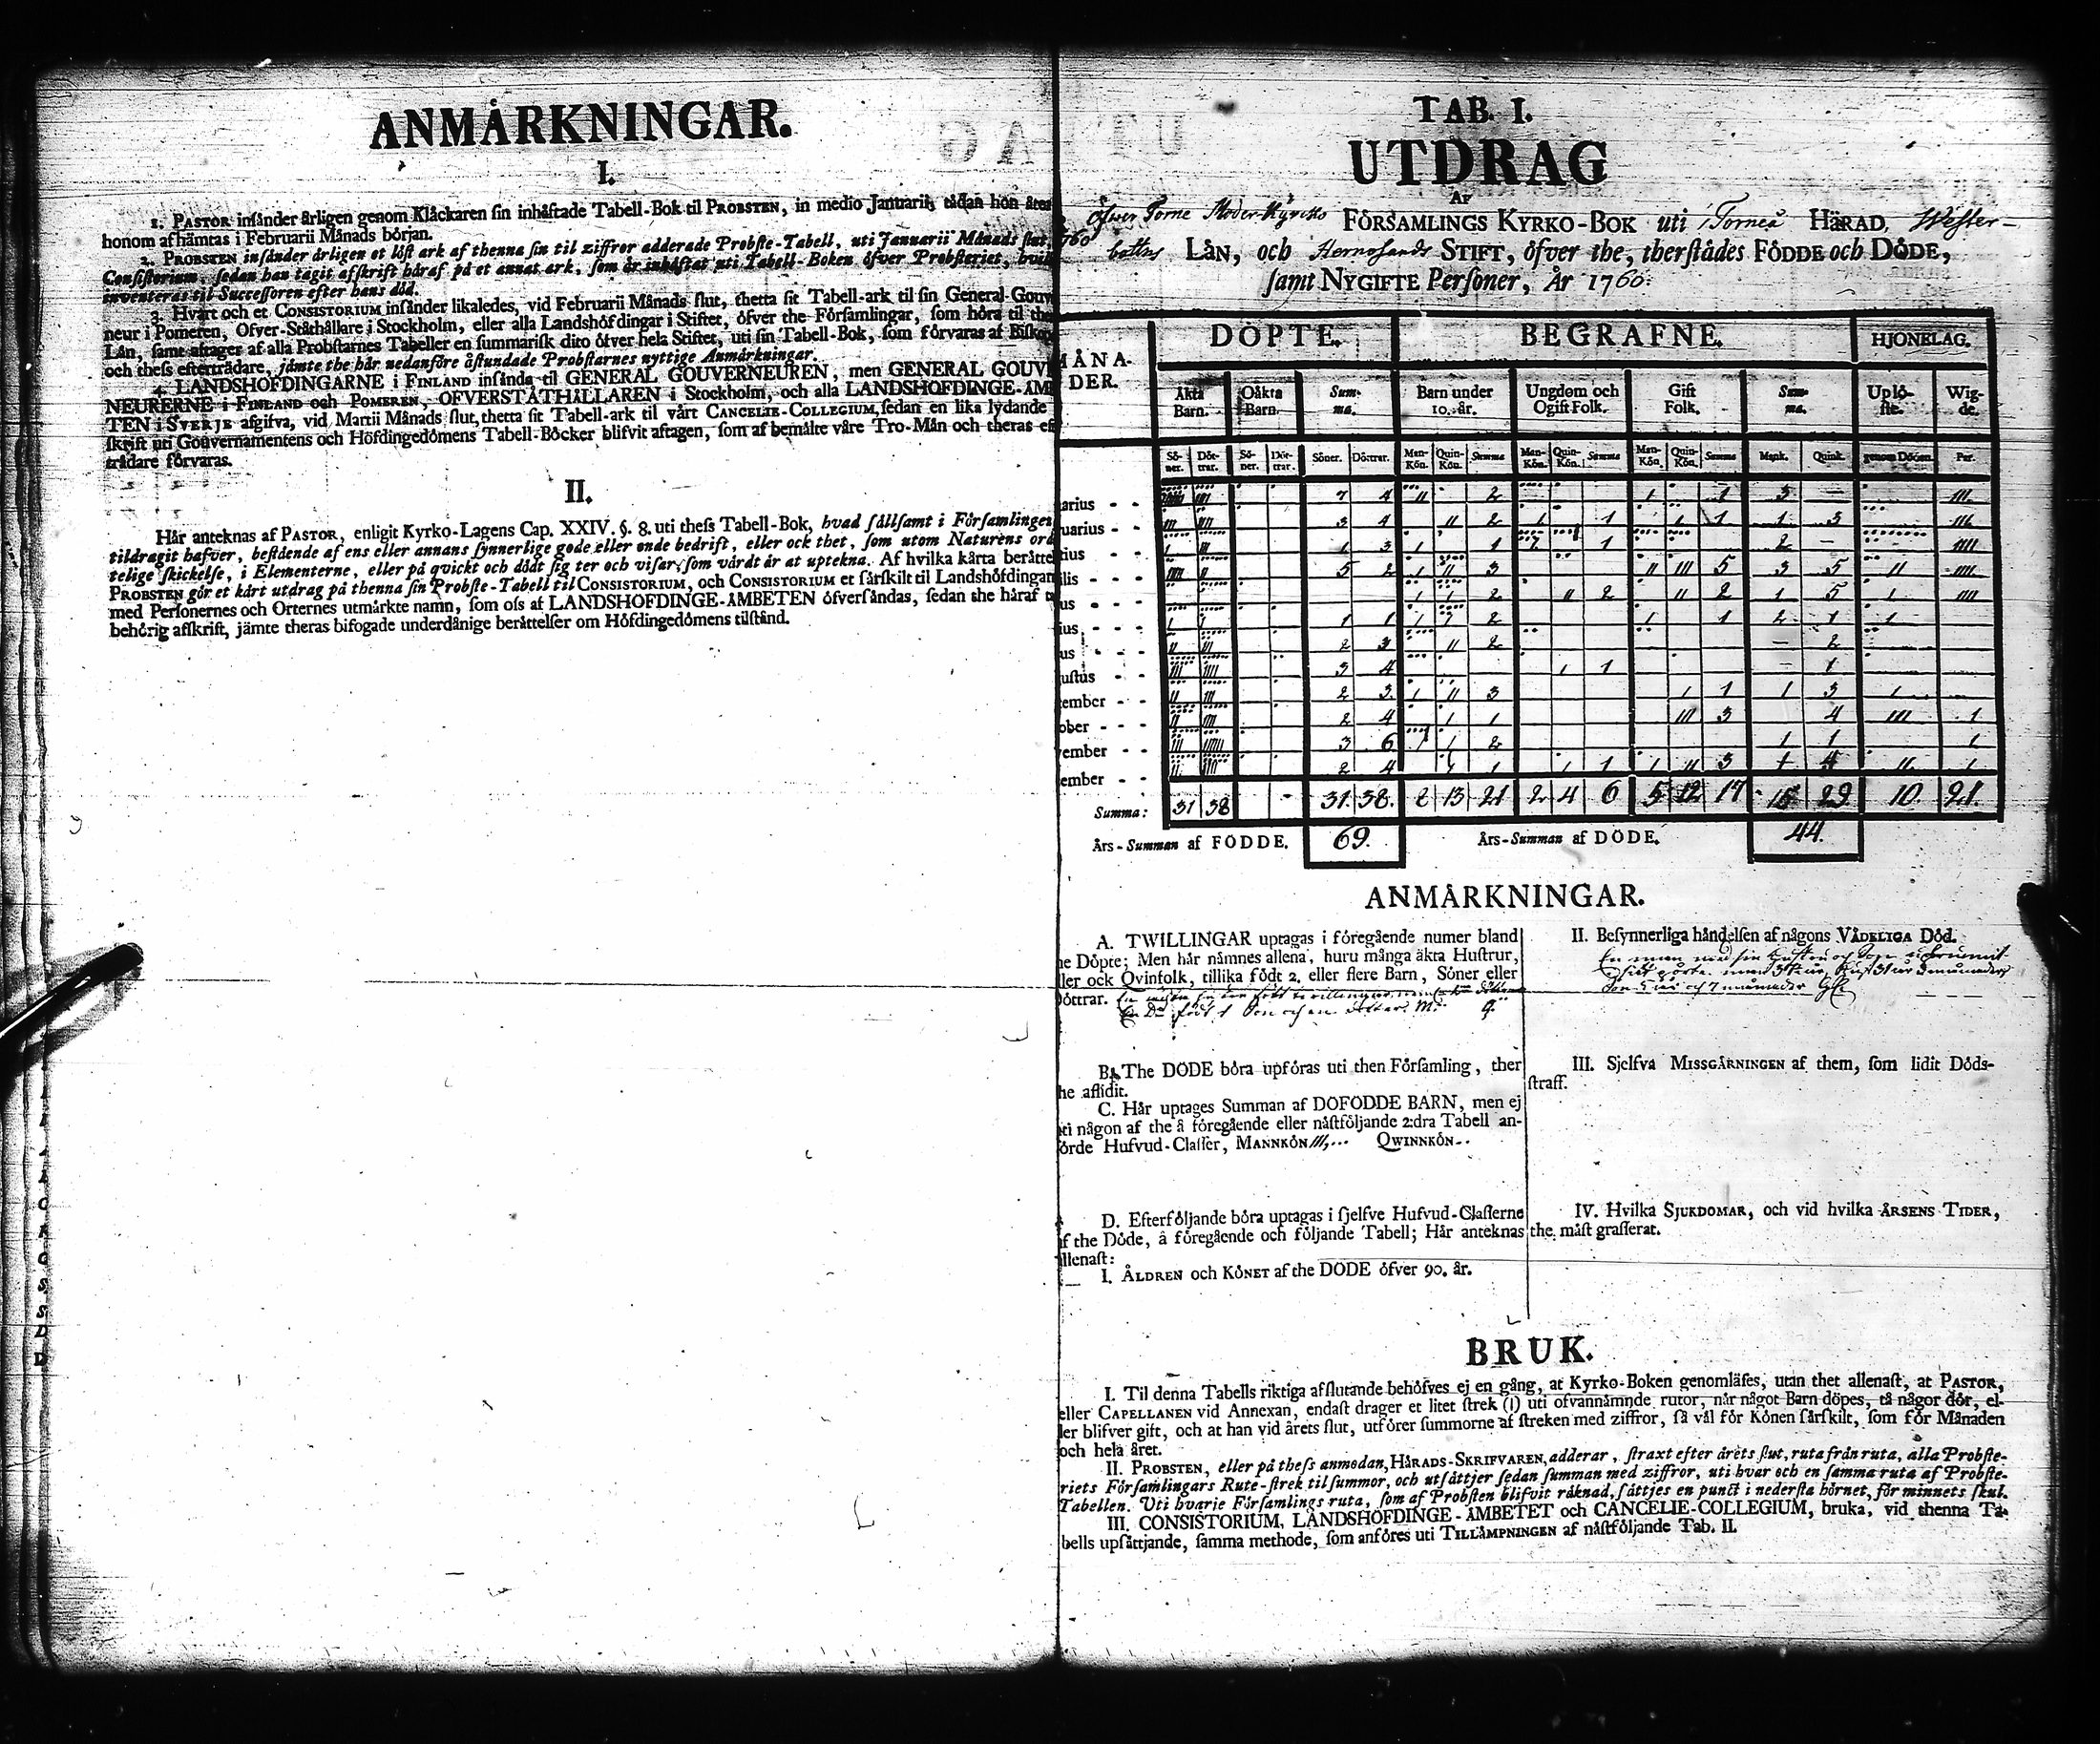 ANMÅRKNINGAR.
I.
1. PASTOR insånder årligen genom Klåckaren sin inhåftade Tabell-Bok til PROBSTEN, in medio Januarii, sådan hon åter
honom afhåmtas i Februarii Månads början.
2. PROBSTEN insånder årligen et löst ark af thenna sin til ziffror adderade Probste-Tabell, uti Januarii Månads slut,
Consistorium, sedan han tagit afskrift håraf på et annat ark, som är inhåftat uti Tabell-Boken öfver Probsteriet, hvil
inventeras til Successoren efter hans död.
3. Hvart och et CONSISTORIUM insånder likaledes, vid Februarii Månads slut, thetta sit Tabell-ark til sin General-Gouv
neur i Pomeren, Öfver-Ståthållare i Stockholm, eller alla Landshöfdingar i Stiftet, öfver the Församlingar, som höra til the
Lån, same aftager af alla Probstarnes Tabeller en summarisk dito öfver hela Stiftet, uti sin Tabell-Bok, som förvaras af Biskop
och thess eftertrådare, jåmte the hår nedanföre åstundade Probstarnes nyttige Anmårkningar.
4. LANDSHÖFDINGARNE i FINLAND insånda til GENERAL GOUVERNEUREN, men GENERAL GOUV
NEURERNE i FINLAND och POMEREN, ÖFVERSTÅTHÅLLAREN i Stockholm, och alla LANDSHÖFDINGE-ÅMB
TEN i SVERJE afgifva, vid Martii Månads slut, thetta sit Tabell-ark til vårt CANCELIE-COLLEGIUM, sedan en lika lydande
skrift uti Gouvernamentens och Höfdingedömens Tabell-Böcker blifvit aftagen, som af bemålte våre Tro-Mån och theras ef
trådare förvaras.
II.
Hår anteknas af PASTOR, enligit Kyrko-Lagens Cap. XXIV. §. 8. uti thess Tabell-Bok, hvad sållsamt i Församlingen
tildragit hafver, bestående af ens eller annans synnerlige gode eller onde bedrift, eller ock thet, som utom Naturens ord
telige skickelse, i Elementerne, eller på qvickt och dödt sig ter och visar, som vårdt är at uptekna. Af hvilka kårta beråtte
PROBSTEN gör et kårt utdrag på thenna sin Probste-Tabell til CONSISTORIUM, och CONSISTORIUM et sårskilt til Landshöfdingan
med Personernes och Orternes utmårkte namn, som oss af LANDSHÖFDINGE-ÅMBETEN öfversåndas, sedan the håraf t
behörig afskrift, jåmte theras bifogade underdånige beråttelser om Höfdingedömens tilstånd.
TAB. I.
UTDRAG
AF
Öfver Torne Moder Kyrkos FÖRSAMLINGS KYRKO-BOK uti Torneå HÄRAD, Wester-
bottns LÅN, och Hernosands STIFT, öfver the, therstådes FÖDDE och DÖDE,
samt NYGIFTE Personer, År 1760.
DÖPTE. BEGRAFNE. HJONELAG.
MÅNA-
DER.
Äkta Barn. Oåkta Barn. Summa. Barn under 10. år. Ungdom och Ogift Folk. Gift Folk. Summa. Uplöste. Wigde.
Söner. Döttrar. Söner. Döttrar. Söner. Döttrar. Man-Kön. Quin-Kön. Summa Man-Kön. Quin-Kön. Summa Man-Kön. Quin-Kön. Summa Mank. Quink. genom Döden. Par.
arius - - 7 4 II 2 I 1 3 - III
uarius - - III IIII 3 4 II 2 I 1 I 1 1 3
tius - - I III 1 3 I 1 1 2 - - IIII
ilis - - - 5 2 I II 3 II III 5 3 5 II
us - - - I I 2 II 2 II 2 1 5 I IIII
ius, - - - I I 1 1 2 I 1 2 1 I
us - - - II III 2 3 II 2 - 2
ustus - - III IIII 3 4 I 1 1
ember - - II III 2 3 I II 3 I 1 1 3 I
ober - - - II IIII 2 4 I 1 III 3 4 III 1
vember - - III 3 6 I I 2 1 1 1
ember - - II IIII 2 4 1 I 1 I II 3 4 II 1
Summa: 31 38 - 31. 38. 8 13 21 2 4 6 5 12 17 15 29 10. 21.
Års-Summan af FÖDDE. 69. Års-Summan af DÖDE. 44.
ANMÅRKNINGAR.
A. TWILLINGAR uptagas i föregående numer bland
e Döpte; Men hår nåmnes allena, huru många äkta Hustrur,
ller ock Qvinfolk, tillika födt 2. eller flere Barn, Söner eller
Döttrar.
B. The DÖDE böra upföras uti then Församling, ther
he aflidit.
C. Hår uptages Summan af DÖFÖDDE BARN, men ej
ti någon af the å föregående eller nåstföljande 2:dra Tabell an-
örde Hufvud-Classer, MANNKÖN III, ... QWINNKÖN..
D. Efterföljande böra uptagas i sjelfve Hufvud-Classerne
f the Döde, å föregående och följande Tabell; Hår anteknas
llenast:
I. ÅLDREN och KÖNET af the DÖDE öfver 90. år.
II. Besynnerliga håndelsen af någons VÅDELIGA DÖD.
III. Sjelfva MISSGÅRNINGEN af them, som lidit Döds-
straff.
IV. Hvilka SJUKDOMAR, och vid hvilka ÅRSENS TIDER,
the måst grasserat.
BRUK.
I. Til denna Tabells riktiga afslutande behöfves ej en gång, at Kyrko-Boken genomläses, utan thet allenast, at PASTOR,
eller CAPELLANEN vid Annexan, endast drager et litet strek (I) uti ofvannåmnde rutor, når något Barn döpes, tå någor dör, el-
ler blifver gift, och at han vid årets slut, utförer summorne af streken med ziffror, så vål för Könen sårskilt, som för Månaden
och hela året.
II. PROBSTEN, eller på thess anmodan, HÅRADS-SKRIFVAREN, adderar, straxt efter årets slut, ruta från ruta, alla Probste-
riets Församlingars Rute-strek til summor, och utsåttjer sedan summan med ziffror, uti hvar och en samma ruta af Probste-
Tabellen. Uti hvarje Församlings ruta, som af Probsten blifvit råknad, såttjes en punct i nedersta hörnet, för minnets skul.
III. CONSISTORIUM, LANDSHÖFDINGE-ÅMBETET och CANCELIE-COLLEGIUM, bruka, vid thenna Ta-
bells upsåttjande, samma methode, som anföres uti TILLÅMPNINGEN af nåstföljande Tab. II.